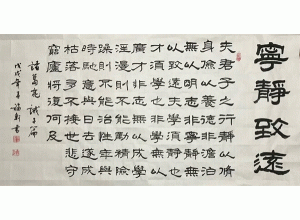 寧靜致遠
夫君子之行靜以脩
身儉以養德非澹泊
無以明志非寧靜無
以致遠夫學須靜也
才須學也非學無以
廣才非志無以成學
淫漫則不能勵精險
躁則不能冶性年與
時馳意與日去遂成
枯落多不接世悲守
窮廬將復何及
諸葛亮誡子篇
戊戌年書